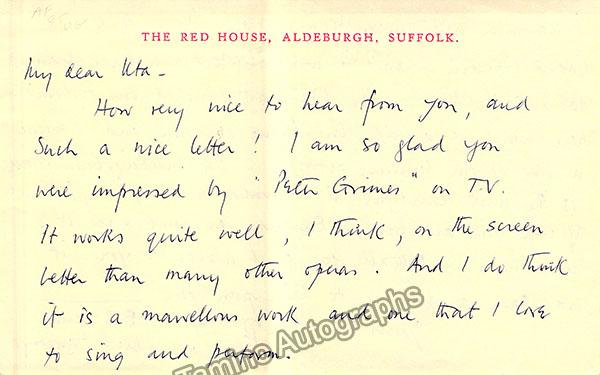 THE RED HOUSE, ALDEBURGH, SUFFOLK.
My dear Uta -
How very nice to hear from you, and
Such a nice letter! I am so glad you
were impressed by "Peter Grimes" on T.V.
It works quite well, I think, on the screen
better than many other operas. And I do think
it is a marvellous work and one that I love
to sing and perform.
Tamino Autographs